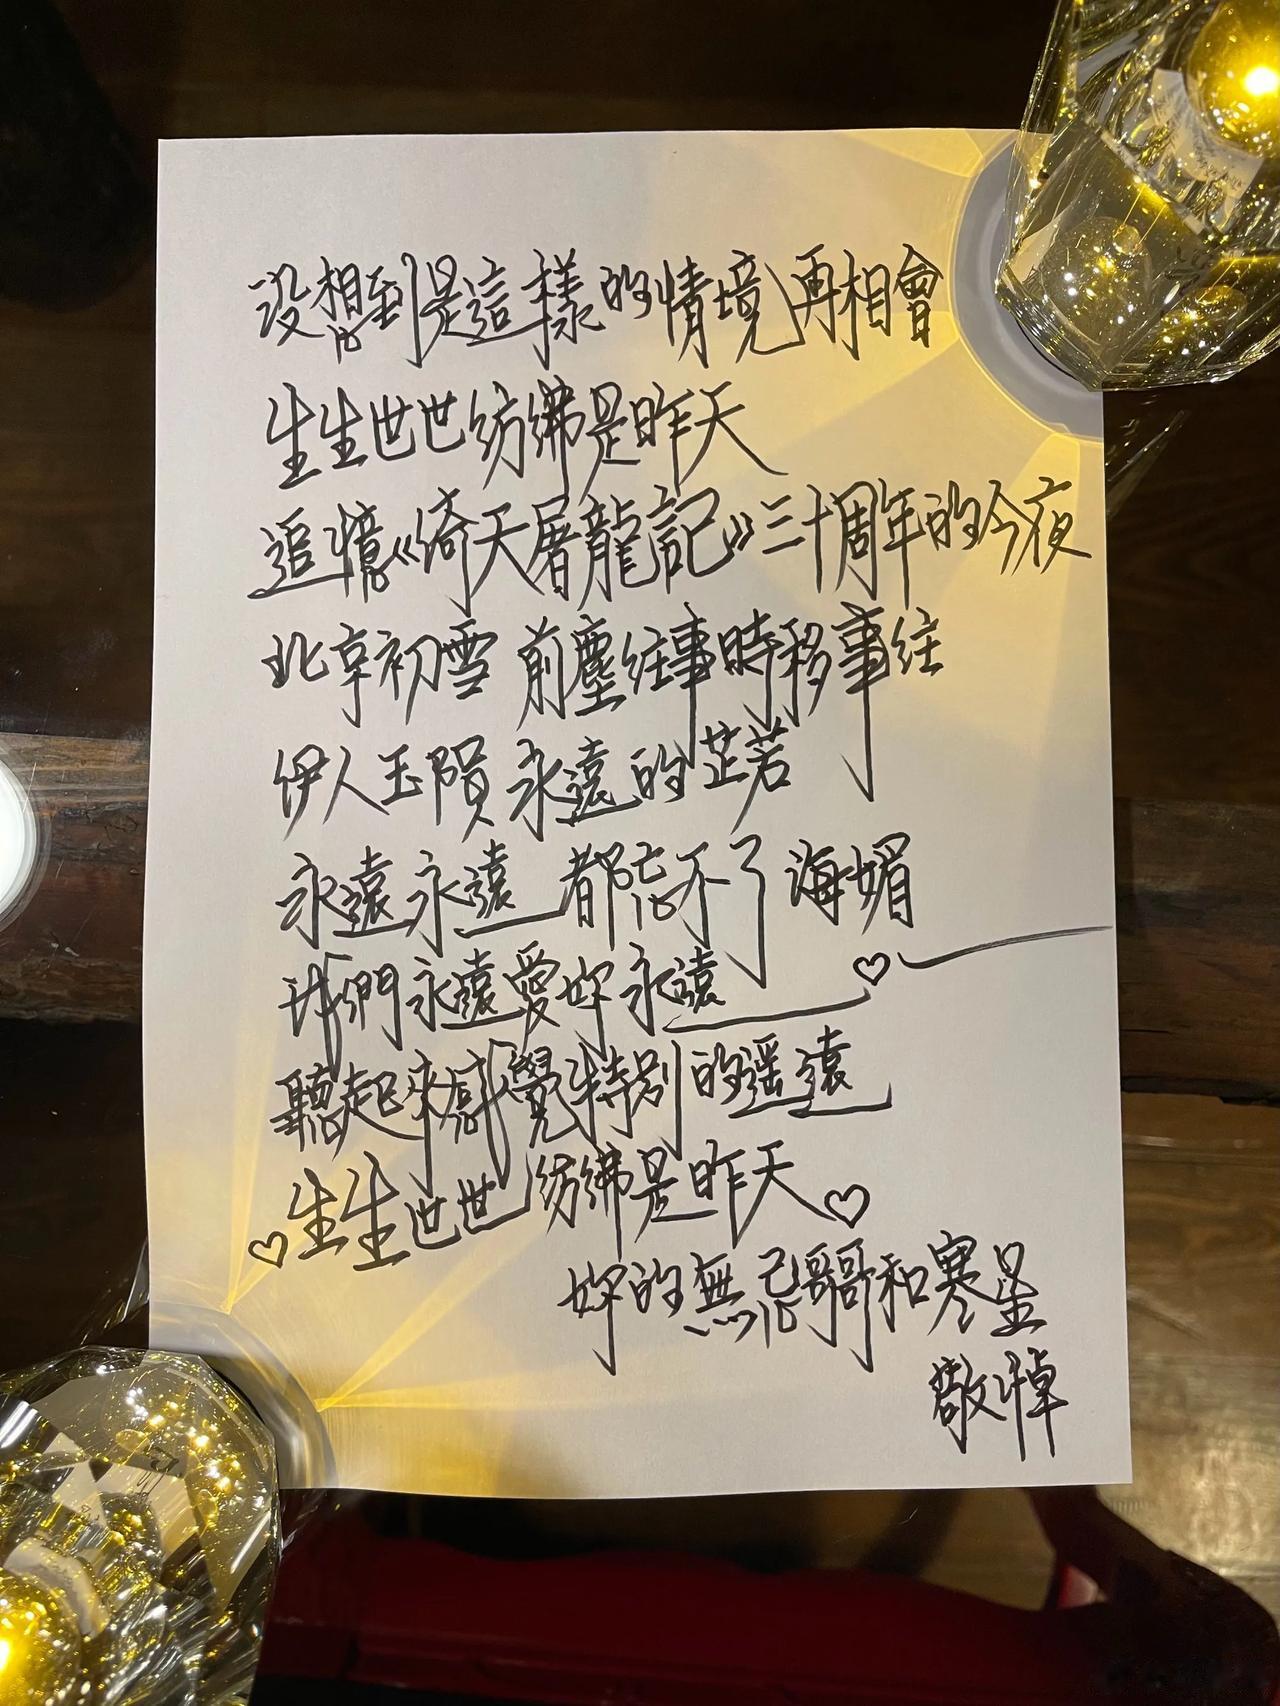 没想到是這樣的情境再相會
生生世世彷彿是昨天
追憶《倚天屠龍記》三十周年的今夜
北京初雪 前塵往事時移事往
伊人玉隕 永遠的芷若
永遠永遠都忘不了海媚
我們永遠愛妳永遠
聽起來感覺特別的遥遠
生生世世彷彿是昨天
妳的無忌哥哥和寒星
敬悼